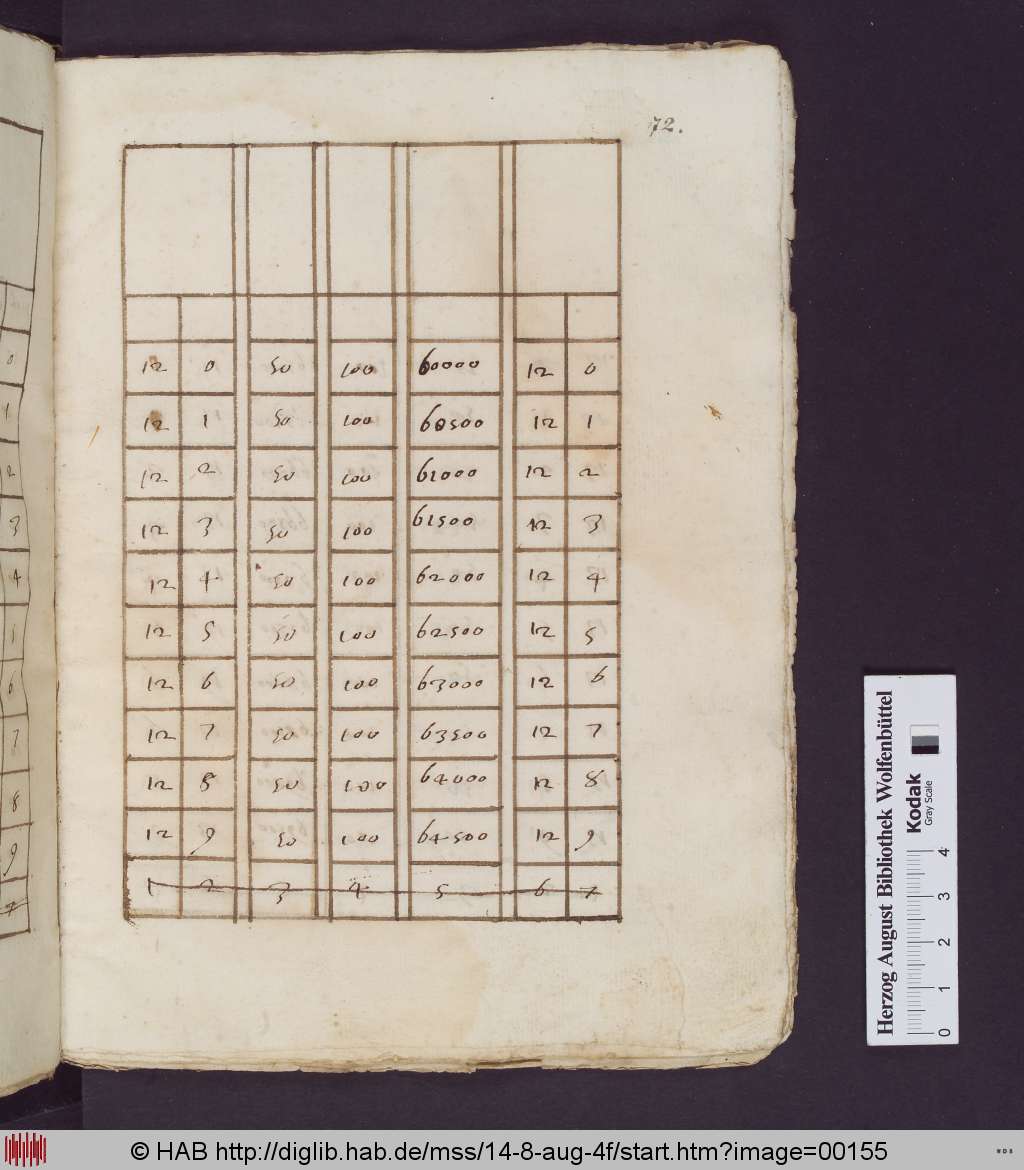 72.
12 0 50 100 60000 12 0
12 1 50 100 60500 12 1
12 2 50 100 61000 12 2
12 3 50 100 61500 12 3
12 4 50 100 62000 12 4
12 5 50 100 62500 12 5
12 6 50 100 63000 12 6
12 7 50 100 63500 12 7
12 8 50 100 64000 12 8
12 9 50 100 64500 12 9
1 2 3 4 5 6 7
0
1
2
3
4
1
6
7
8
9
7
Herzog August Bibliothek Wolfenbüttel
Kodak
Gray Scale
0 1 2 3 4
© HAB http://diglib.hab.de/mss/14-8-aug-4f/start.htm?image=00155